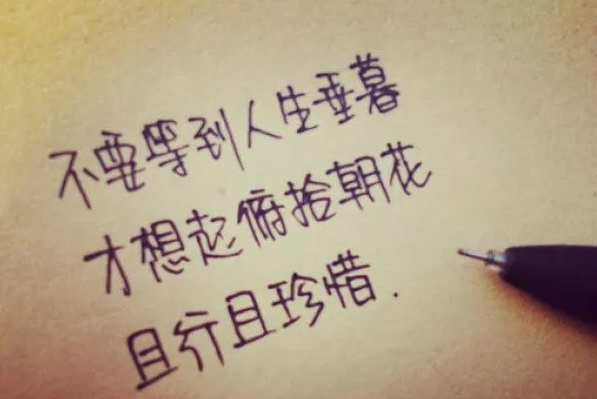 不要等到人生垂暮
才想起俯拾朝花
且行且珍惜.